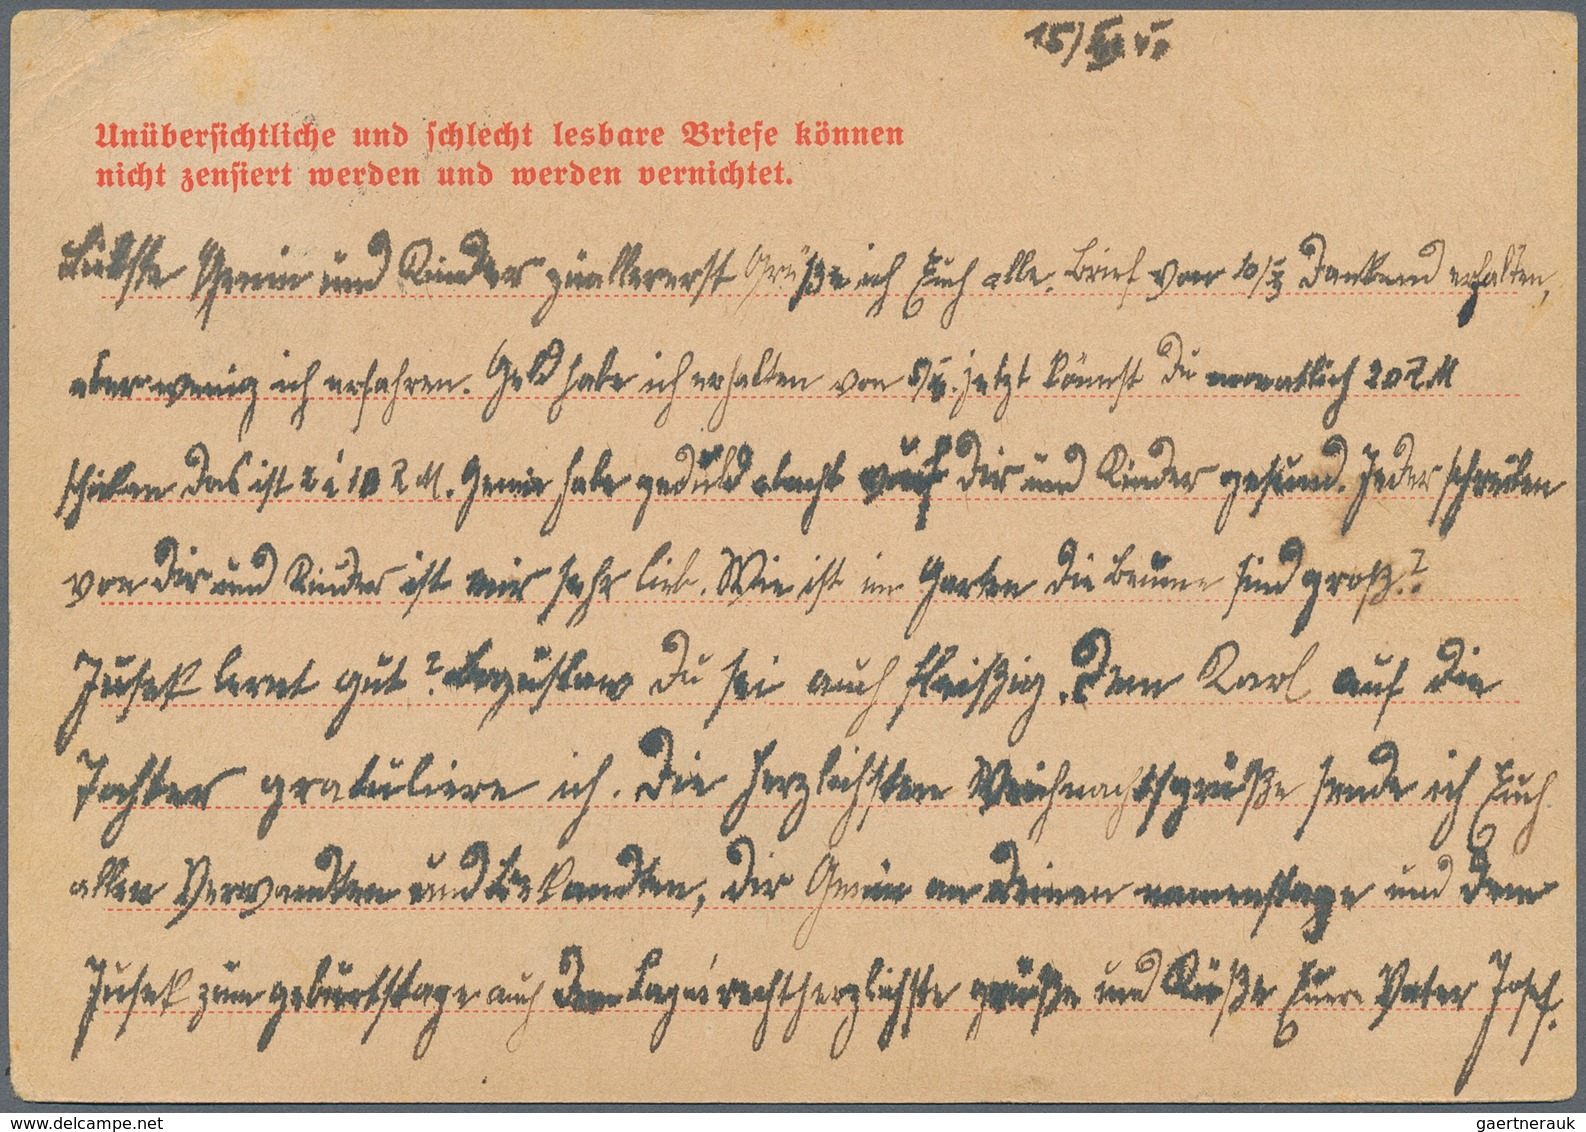 Unübersichtliche und schlecht lesbare Briefe können
nicht zensiert werden und werden vernichtet.
Liebste Genia und Kinder zuallererst Grüße ich Euch alle, Brief vom 10/X Dankend erhalten,
aber wenig ich erfahren. Geld habe ich erhalten von jetzt könnst Du monatlich 20 RM
schicken das ist 2 á 10 RM. Genia habe geduld auf Dir und Kinder gesund. Jeder schreiben
von Dir und Kinder ist mir sehr lieb. Wie ist im Garten die Beume sind groß?
Jusek lernt gut? Boguslaw Du sei auch fleißig. Dem Karl auf die
Tochter gratuliere ich. Die herzlichsten Weihnachtsgrüße sende ich Euch
allen Verwandten und Bekandten, dir Genia an deinen namenstage und dem
Jusek zum geburtstage auch dem recht herzlichste grüße und Küße Euere Vater Josef.
gaertnerauk